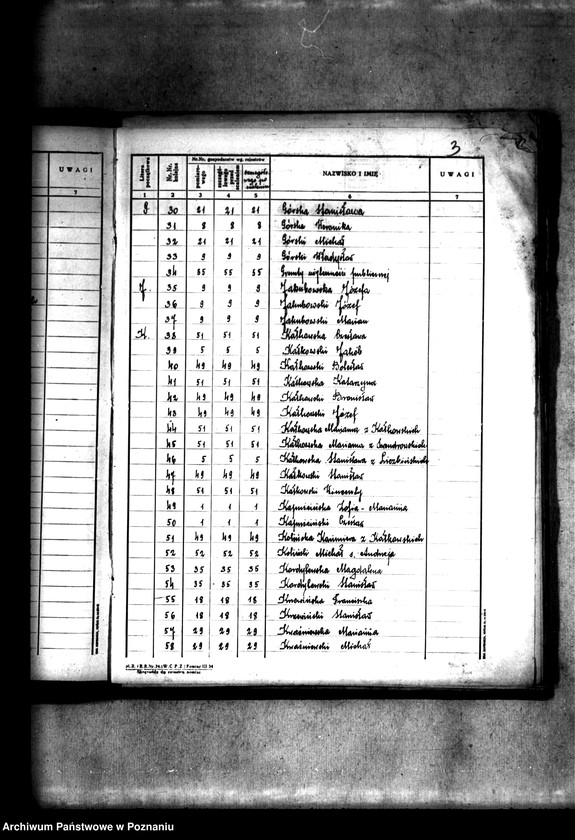 3
UWAGI
7
Litera początkowa
Nr. Nr. bieżące
Nr. Nr. gospodarstw wg. rejestrów
NAZWISKO I IMIĘ
UWAGI
1 2 3 4 5 6 7
G 30 21 21 21 Górska Stanisława
31 8 8 8 Górska Weronika
32 21 21 21 Górski Michał
33 9 9 9 Górski Władysław
34 55 55 55 Grunty użyteczności publicznej
J 35 9 9 9 Jakubowska Józefa
36 9 9 9 Jakubowski Józef
37 9 9 9 Jakubowski Marian
K 38 51 51 51 Kałkowska Czesława
39 5 5 5 Kałkowski Jakób
40 49 49 49 Kałkowski Bolesław
41 51 51 51 Kałkowska Katarzyna
42 49 49 49 Kałkowski Bronisław
43 49 49 49 Kałkowski Józef
44 51 51 51 Kałkowska Marianna z Kałkowskich
45 51 51 51 Kałkowska Marianna z
46 5 5 5 Kałkowska Stanisława z
47 49 49 49 Kałkowski Stanisław
48 51 51 51 Kałkowski Wincenty
49 1 1 1 Zofia - Marianna
50 1 1 1 Czesław
51 49 49 49 Kolińska Kazimiera z Kałkowskich
52 52 52 52 Koliński Michał s. Andrzeja
53 35 35 35 Kordylewska Magdalena
54 35 35 35 Kordylewski Stanisław
55 18 18 18 Franciszka
56 18 18 18 Stanisław
57 29 29 29 Kwaśniewska Marianna
58 29 29 29 Kwaśniewski Michał
Archiwum Państwowe w Poznaniu